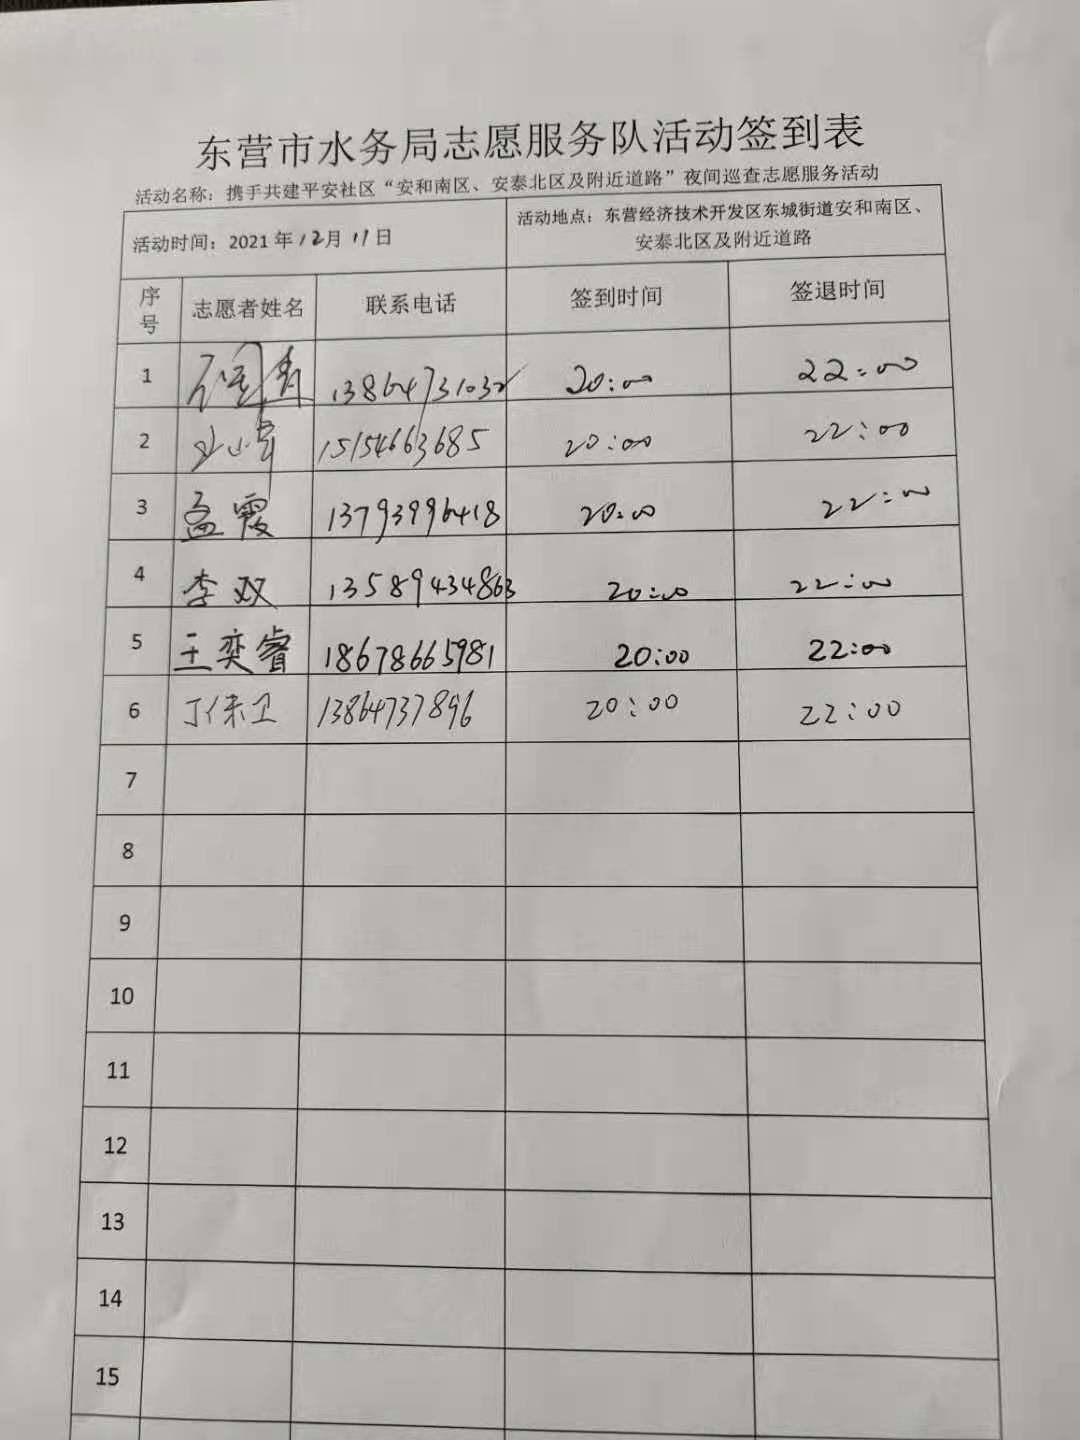 东营市水务局志愿服务队活动签到表
活动名称：携手共建平安社区“安和南区、安泰北区及附近道路”夜间巡查志愿服务活动
活动时间：2021 年 12月 11日
活动地点：东营经济技术开发区东城街道安和南区、
安泰北区及附近道路
序号 志愿者姓名 联系电话 签到时间 签退时间
1 20:00 22:00
2 15154663685 20:00 22:00
3 孟霞 13793996418 20:00 22:00
4 李双 13589434863 20:00 22:00
5 王奕睿 18678665981 20:00 22:00
6 丁保卫 13864737896 20:00 22:00
7
8
9
10
11
12
13
14
15